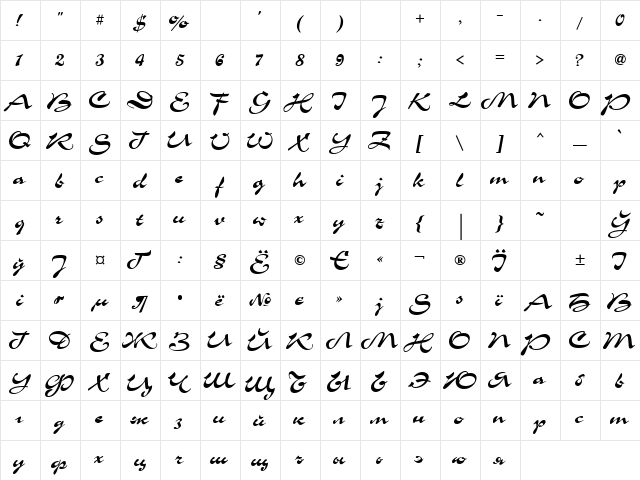 ! " # $ % ' ( ) + , - . / 0
1 2 3 4 5 6 7 8 9 : ; < = > ? @
A B C D E F G H I J K L M N O P
Q R S T U V W X Y Z [ \ ] ^ _ `
a b c d e f g h i j k l m n o p
q r s t u v w x y z { | } ~ Ў
ў Ј ¤ Г : § Ё © Є « ¬ ® Ї ± І
і г µ ¶ • ё № є » ј Ѕ ѕ ї А Б В
Г Д Е Ж З И Й К Л М Н О П Р С Т
У Ф Х Ц Ч Ш Щ Ъ Ы Ь Э Ю Я а б в
г д е ж з и й к л м н о п р с т
у ф х ц ч ш щ ъ ы ь э ю я